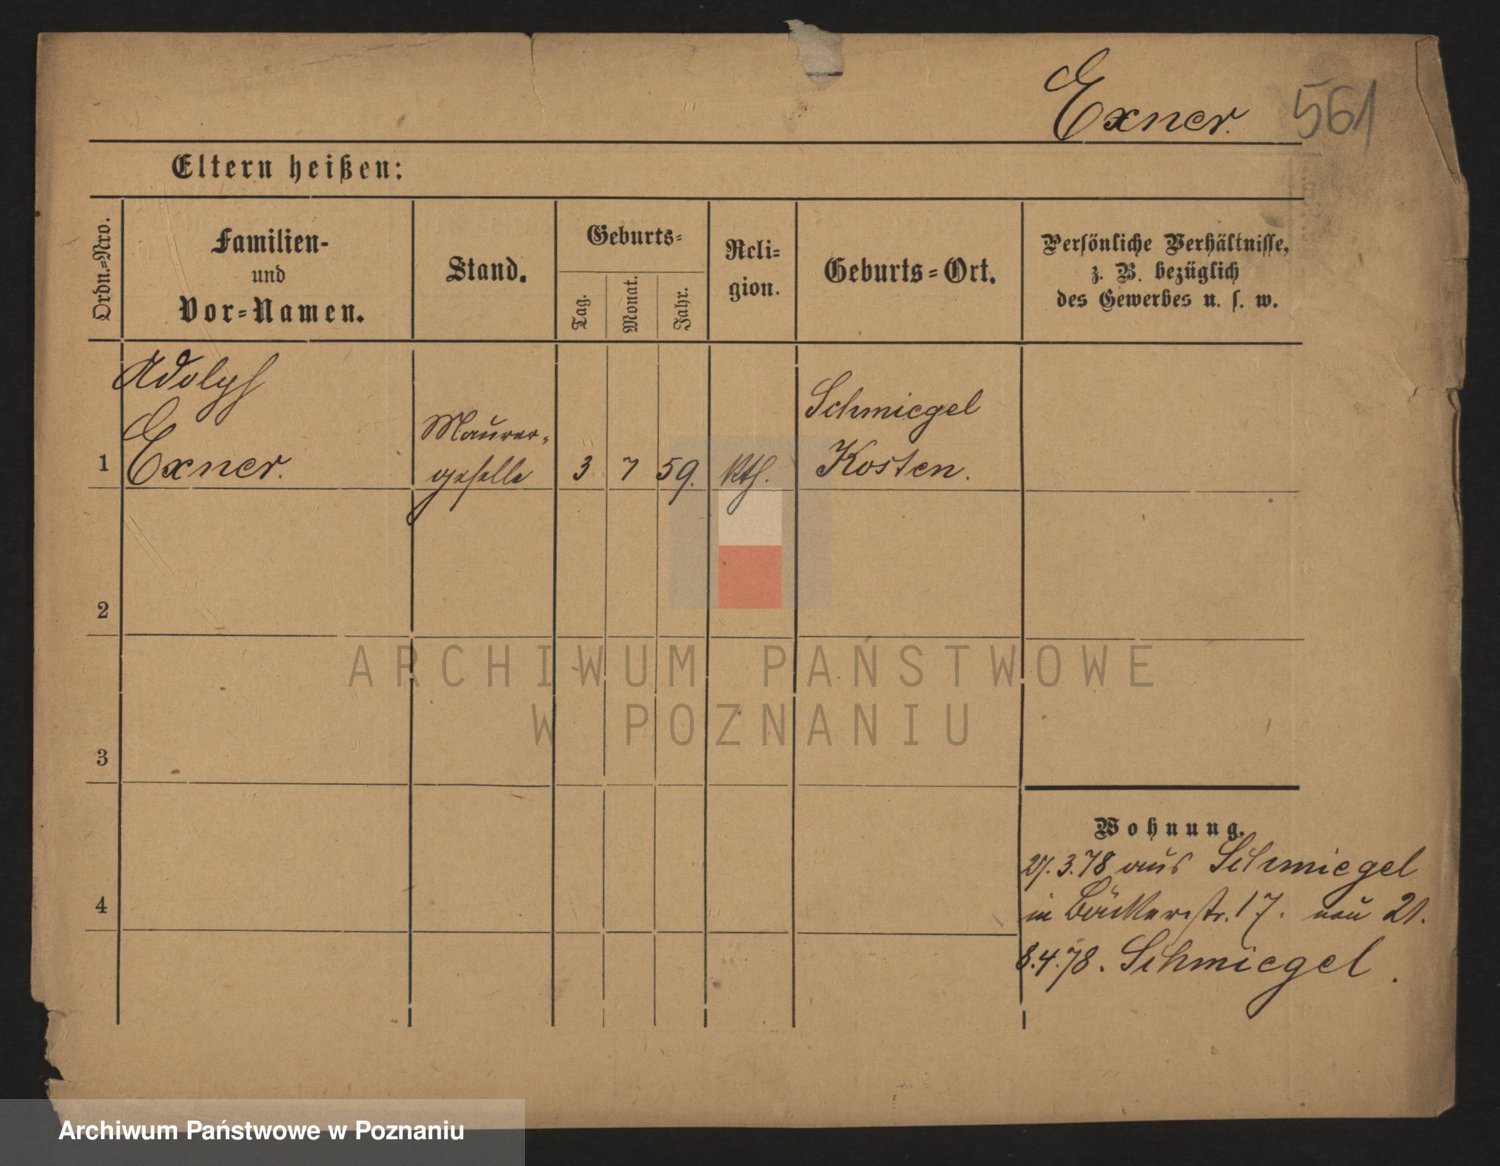 Exner. 561
Eltern heißen:
Ordn.=Nro.
Familien-
und
Vor=Namen.
Stand.
Geburts=
Tag.
Monat.
Jahr.
Reli=
gion.
Geburts=Ort.
Persönliche Verhältnisse,
z. B. bezüglich
des Gewerbes u. s. w.
1
Adolph
Exner.
Maurer-
geselle
3 7 59.
Kth.
Schmiegel
Kosten.
2
ARCHIWUM PAŃSTWOWE
W POZNANIU
3
Wohnung.
27.3.78 aus Schmiegel
in Bäckerstr. 17. neu 21.
4
8.4.78. Schmiegel.
Archiwum Państwowe w Poznaniu